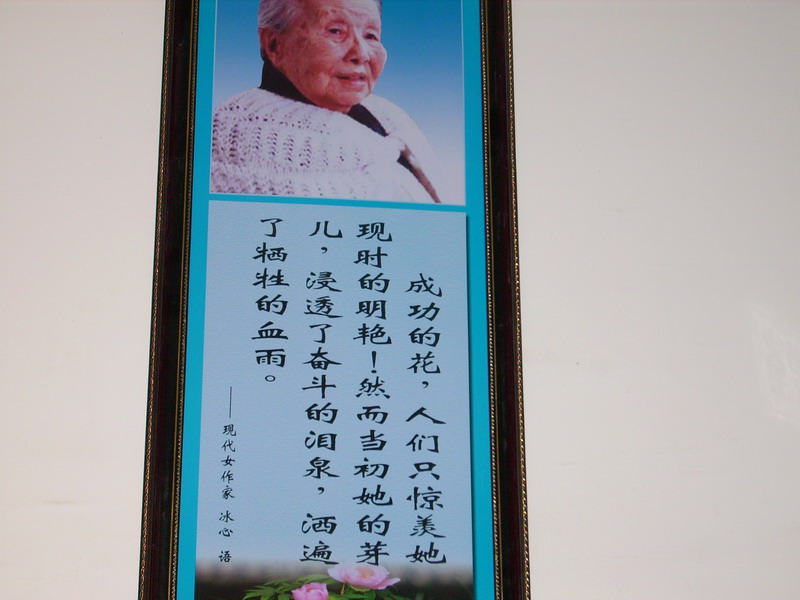 成功的花，人们只惊羡她
现时的明艳！然而当初她的芽
儿，浸透了奋斗的泪泉，洒遍
了牺牲的血雨。
——现代女作家 冰心 语